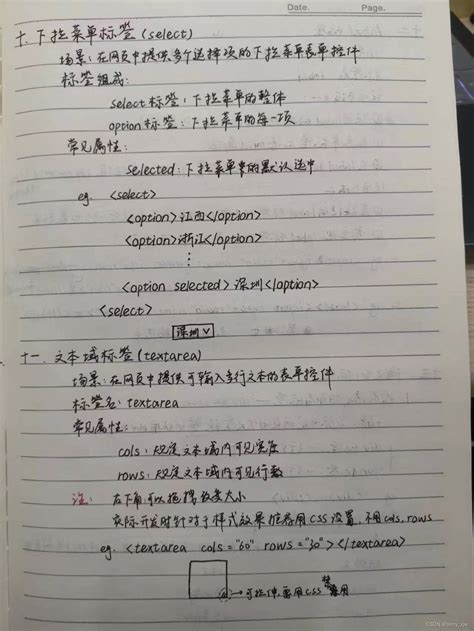 Date.
Page.
十. 下拉菜单标签(select)
场景:在网页中提供多个选择项的下拉菜单表单控件
标签组成:
select标签:下拉菜单的整体
option标签:下拉菜单的每一项
常见属性:
selected:下拉菜单的默认选中
eg. <select>
<option>江西</option>
<option>浙江</option>
⋮
<option selected>深圳</option>
<select>
深圳 ∨
十一. 文本域标签(textarea)
场景:在网页中提供可输入多行文本的表单控件
标签名:textarea
常见属性:
cols:规定文本域内可见宽度
rows:规定文本域内可见行数
注: 右下角可以拖拽改变大小
实际开发时针对于样式效果推荐用CSS设置,不用cols,rows
eg. <textarea cols="60" rows="30"></textarea>
→可拉伸,要用CSS禁用